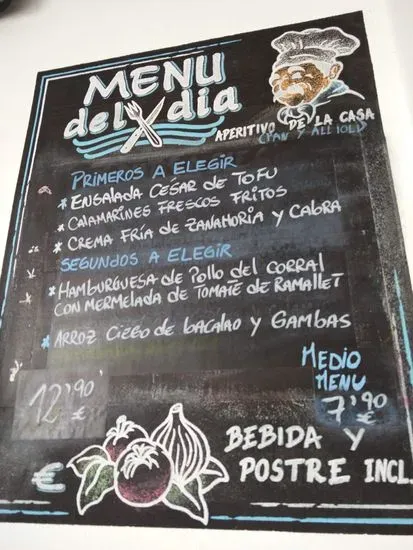 MENU
del día
APERITIVO DE LA CASA
(PAN Y ALL IOLI)
PRIMEROS A ELEGIR
* ENSALADA CÉSAR DE TOFU
* CALAMARINES FRESCOS FRITOS
* CREMA FRÍA DE ZANAHORIA Y CABRA
SEGUNDOS A ELEGIR
* HAMBURGUESA DE POLLO DEL CORRAL
CON MERMELADA DE TOMATE DE RAMALLET
* ARROZ CIEGO DE BACALAO Y GAMBAS
12'90 €
MEDIO
MENU
7'90 €
€
BEBIDA Y
POSTRE INCL.